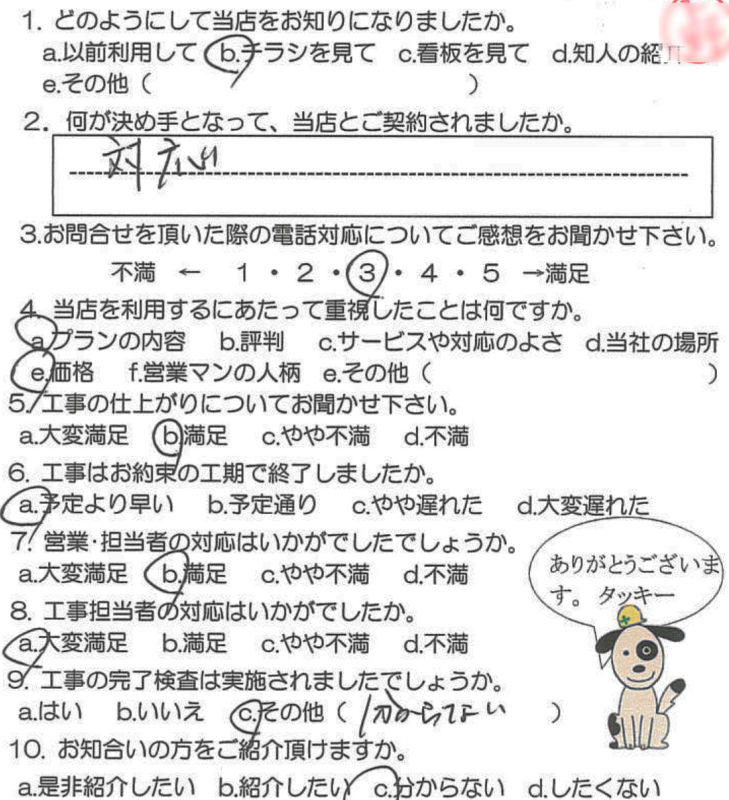 1. どのようにして当店をお知りになりましたか。
a.以前利用して b.チラシを見て c.看板を見て d.知人の紹
e.その他（ ）
2. 何が決め手となって、当店とご契約されましたか。
対応
3.お問合せを頂いた際の電話対応についてご感想をお聞かせ下さい。
不満 ← 1・2・3・4・5 →満足
4. 当店を利用するにあたって重視したことは何ですか。
a.プランの内容 b.評判 c.サービスや対応のよさ d.当社の場所
e.価格 f.営業マンの人柄 e.その他（ ）
5. 工事の仕上がりについてお聞かせ下さい。
a.大変満足 b.満足 c.やや不満 d.不満
6. 工事はお約束の工期で終了しましたか。
a.予定より早い b.予定通り c.やや遅れた d.大変遅れた
7. 営業・担当者の対応はいかがでしたでしょうか。
a.大変満足 b.満足 c.やや不満 d.不満
ありがとうございま
す。 タッキー
8. 工事担当者の対応はいかがでしたか。
a.大変満足 b.満足 c.やや不満 d.不満
9. 工事の完了検査は実施されましたでしょうか。
a.はい b.いいえ c.その他（分からない ）
10. お知合いの方をご紹介頂けますか。
a.是非紹介したい b.紹介したい c.分からない d.したくない